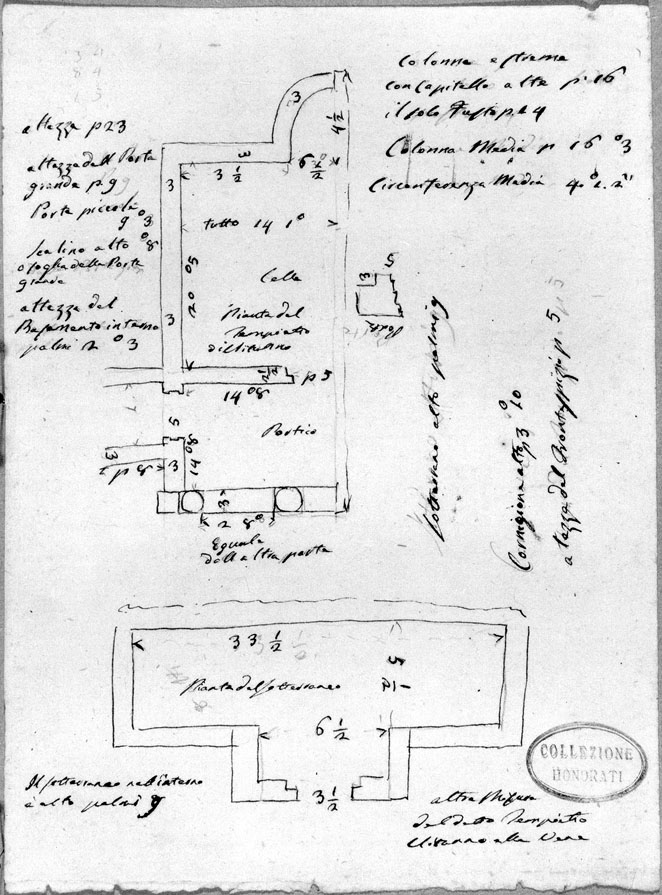 Colonna estrema
con Capitello alta p 16
il solo fusto p 14
Colonna Media p 16 °3
Circonferenza Media 4.° 2. 2"
altezza p 23
altezza dell Porta
grande p 9
Porta piccola
9 °3
Scalino alto °8
o soglia della Porta
grande
altezza del
Basamento interno
palmi 2 °3
3
4 ½
3
3 ½
6 ½
3
tutto 14 1°
20 °5
Cella
Pianta del
Tempietto
di Clitunno
3
3
5
½
p 5
14 °8
5
Portico
3
p 8
3
14 °8
3
2 8°
Eguale
dell altra parte
sotterraneo alto palmi 9
Cornigione alto p 3 °10
altezza del frontespizio p. 5
33 ½
5 ½
Pianta del sotterraneo
6 ½
3 ½
Il sotterraneo nell'interno
è alto palmi 9
altra Misura
del detto Tempietto
Clitunno alle Vene
COLLEZIONE
HONORATI